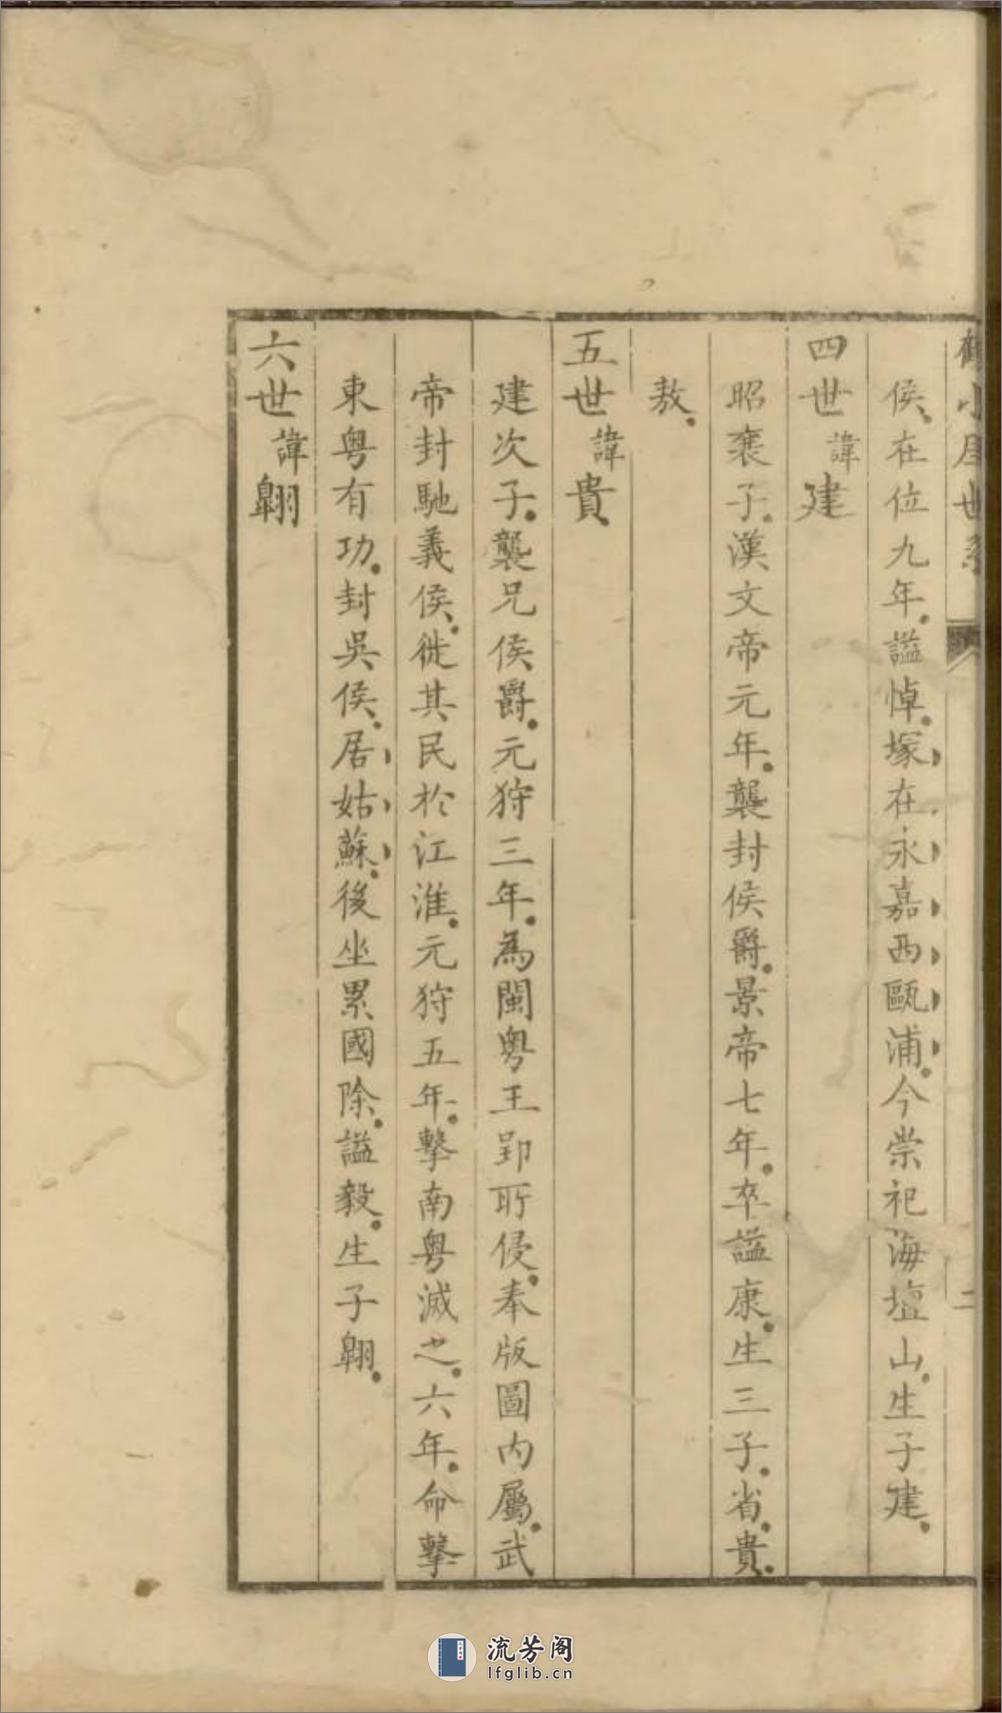 侯在位九年謚悼塚在永嘉西甌浦今崇祀海壇山生子建
四世諱建
昭襃子漢文帝元年襲封侯爵景帝七年卒謚康生三子省貴
敖
五世諱貴
建次子襲兄侯爵元狩三年為閩粵王郢所侵奉版圖內屬武
帝封馳義侯徙其民於江淮元狩五年擊南粵滅之六年命擊
東粵有功封吳侯居姑蘇後坐累國除謚毅生子翺
六世諱翺
流芳阁
lfglib.cn